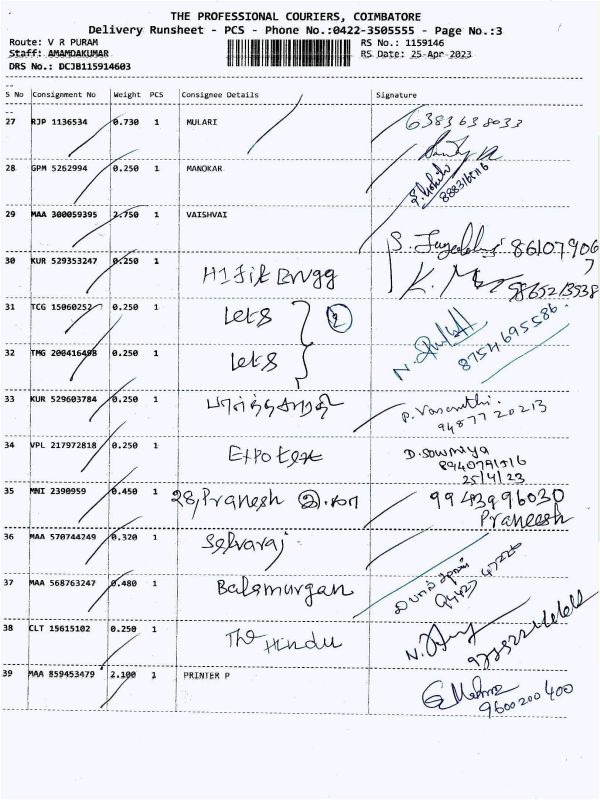 THE PROFESSIONAL COURIERS, COIMBATORE
Delivery Runsheet - PCS - Phone No.:0422-3505555 - Page No.:3
Route: V R PURAM RS No.: 1159146
Staff: AMAMDAKUMAR RS Date: 25-Apr-2023
DRS No.: DCJB115914603
S No Consignment No Weight PCS Consignee Details Signature
27 RJP 1136534 0.730 1 MULARI 6383638033
28 GPM 5262994 0.250 1 MANOKAR
29 MAA 300059395 2.750 1 VAISHVAI S. 861079067
30 KUR 529353247 0.250 1 K. 9865213538
31 TCG 15060252 0.250 1 Lets 2
32 TMG 200416498 0.250 1 Lets N. 8754695586
33 KUR 529603784 0.250 1 P. Vasanthi
9487720213
34 VPL 217972818 0.250 1 Expotex D. Sowmiya
25/4/23
35 MNI 2390959 0.450 1 28, Pranesh 9943996030
Praneesh
36 MAA 570744249 0.320 1 Selvaraj
37 MAA 568763247 0.480 1 Balamurgan
38 CLT 15615102 0.250 1 The Hindu N.
39 MAA 859453479 2.100 1 PRINTER P
9600200400